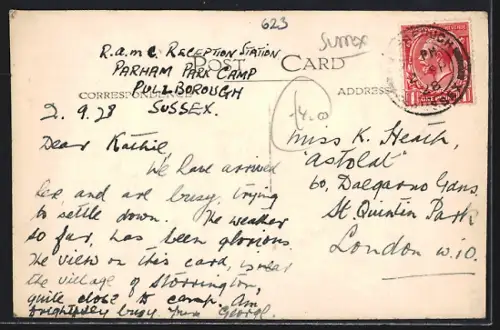 623
Sussex
R.a.m.c Reception Station
Parham Park Camp
Pullborough
Sussex.
POST CARD
CORRESPONDENCE
ADDRESS
2.9.28
Dear Kathie,
We have arrived
here and are busy, trying
to settle down. The weather
so far, has been glorious.
The view on this card, is near
the village of Storrington,
quite close to camp. Am
frightfully busy. Yours George.
Miss K. Heath,
"Astolat"
60, Dalgarno Gdns.
St. Quintin Park
London W.10.